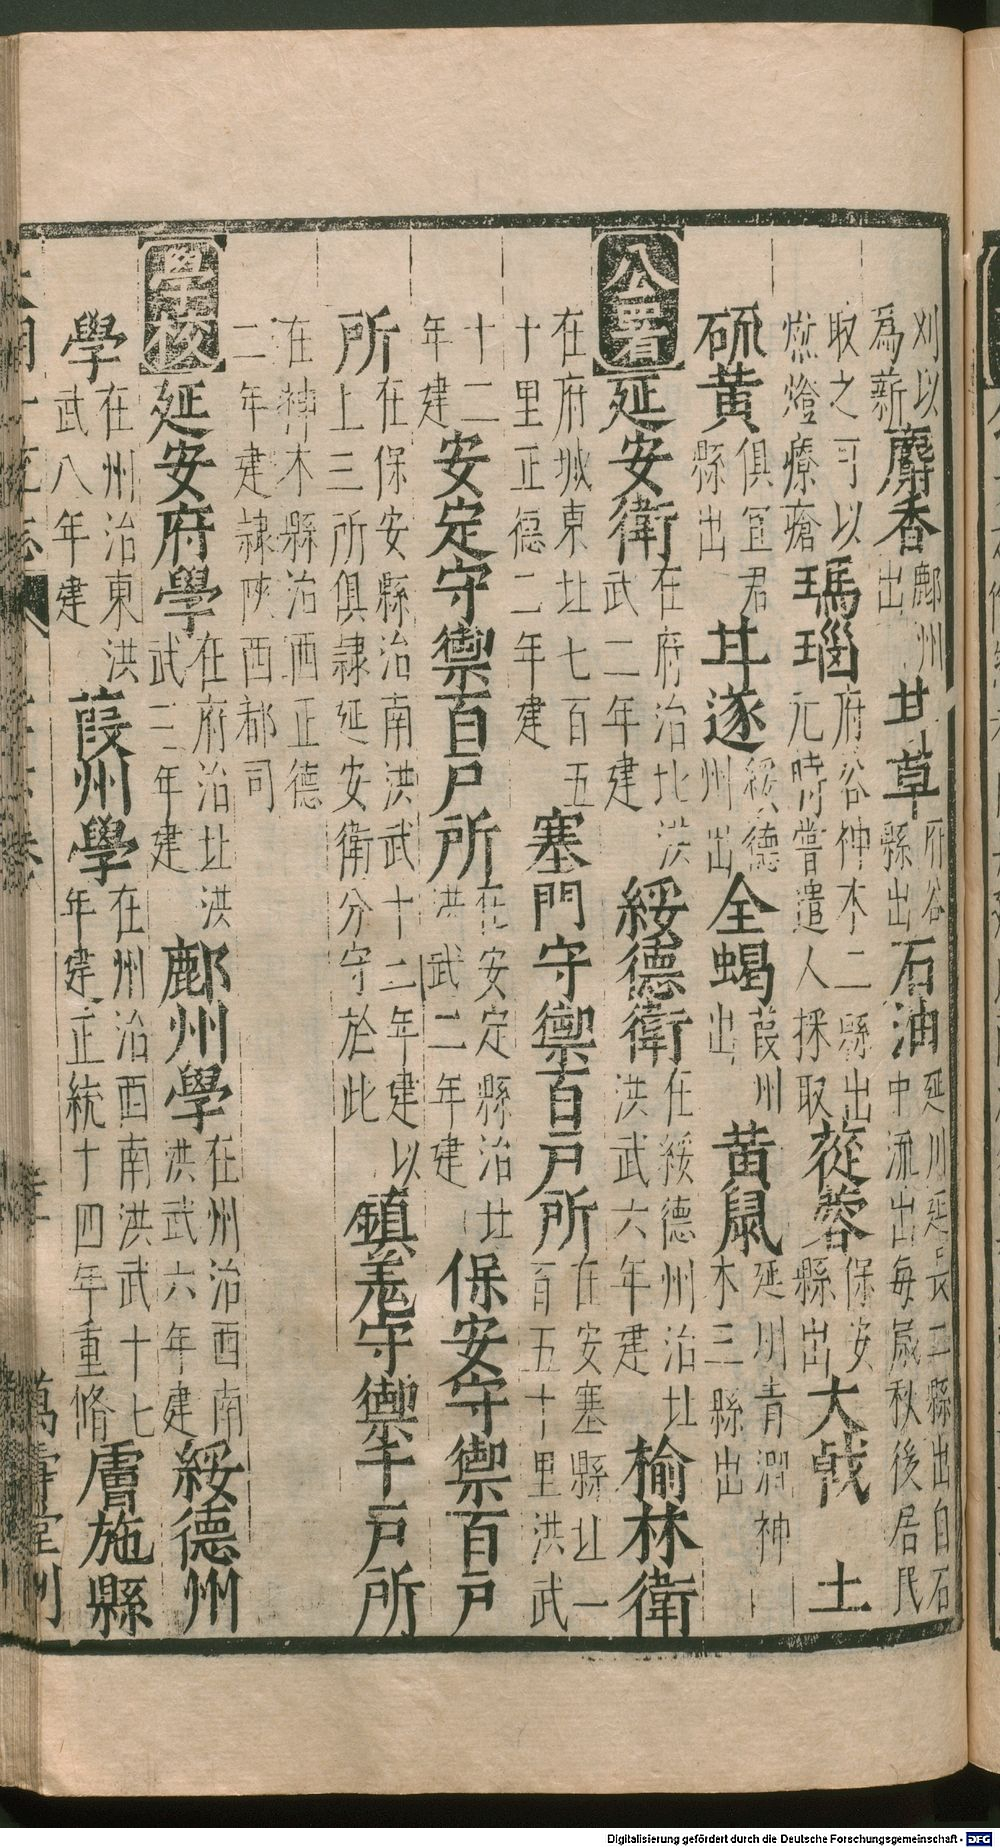 刈以為薪麝香鄜州出甘草府谷縣出石油延川延長二縣出自石中流出每歲秋後居民
取之可以燃燈療瘡瑪瑙府谷神木二縣出元時嘗遣人採取蓯蓉保安縣出大戟土
硫黄俱宜君縣出甘遂綏德州出全蝎葭州出黄鼠延川青澗神木三縣出
公署延安衛在府治北洪武二年建綏德衛在綏德州治北洪武六年建榆林衛
在府城東北七百五十里正德二年建塞門守禦百戶所在安塞縣北一百五十里洪武
十二年建安定守禦百戶所在安定縣治北洪武二年建保安守禦百戶
所在保安縣治南洪武十二年建以上三所俱隷延安衛分守於此鎮羗守禦千戶所
在神木縣治西正德二年建隷陝西都司
學校延安府學在府治北洪武三年建鄜州學在州治西南洪武六年建綏德州
學在州治東洪武八年建葭州學在州治西南洪武十七年建正統十四年重脩膚施縣
萬壽堂刊
Digitalisierung gefördert durch die Deutsche Forschungsgemeinschaft - DFG